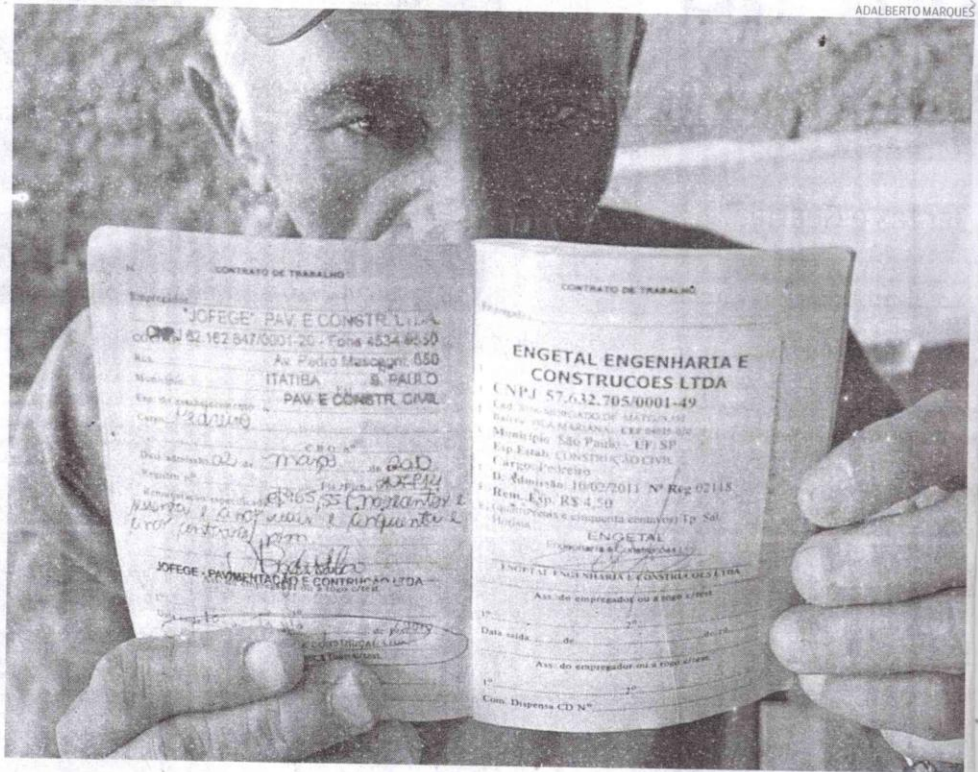 ADALBERTO MARQUES
CONTRATO DE TRABALHO
Empregador
"JOFEGE" PAV. E CONSTR. LTDA
CNPJ 62.162.847/0001-20 - Fone 4534 8550
Rua Av. Pedro Mascagni, 650
Município ITATIBA S. PAULO
Esp. do estabelecimento PAV. E CONSTR. CIVIL
Cargo
C.B.O. nº
Data admissão 02 de março de 2010
Registro nº
Remuneração especificada
JOFEGE - PAVIMENTAÇÃO E CONTRUÇÃO LTDA
CONTRATO DE TRABALHO
Empregador
ENGETAL ENGENHARIA E
CONSTRUCOES LTDA
CNPJ 57.632.705/0001-49
Bairro: VILA MARIANA
Município: São Paulo - UF: SP
Esp.Estab: CONSTRUÇÃO CIVIL
Cargo: Pedreiro
D. Admissão: 10/02/2011 Nº Reg 02118
Rem. Esp. R$ 4,50
(quatro reais e cinquenta centavos) Tp. Sal.
Horista
ENGETAL
Engenharia e Construções
ENGETAL ENGENHARIA E CONSTRUCOES LTDA
Ass. do empregador ou a rogo c/test.
1º 2º
Data saída de de
Ass. do empregador ou a rogo c/test.
1º 2º
Com. Dispensa CD Nº